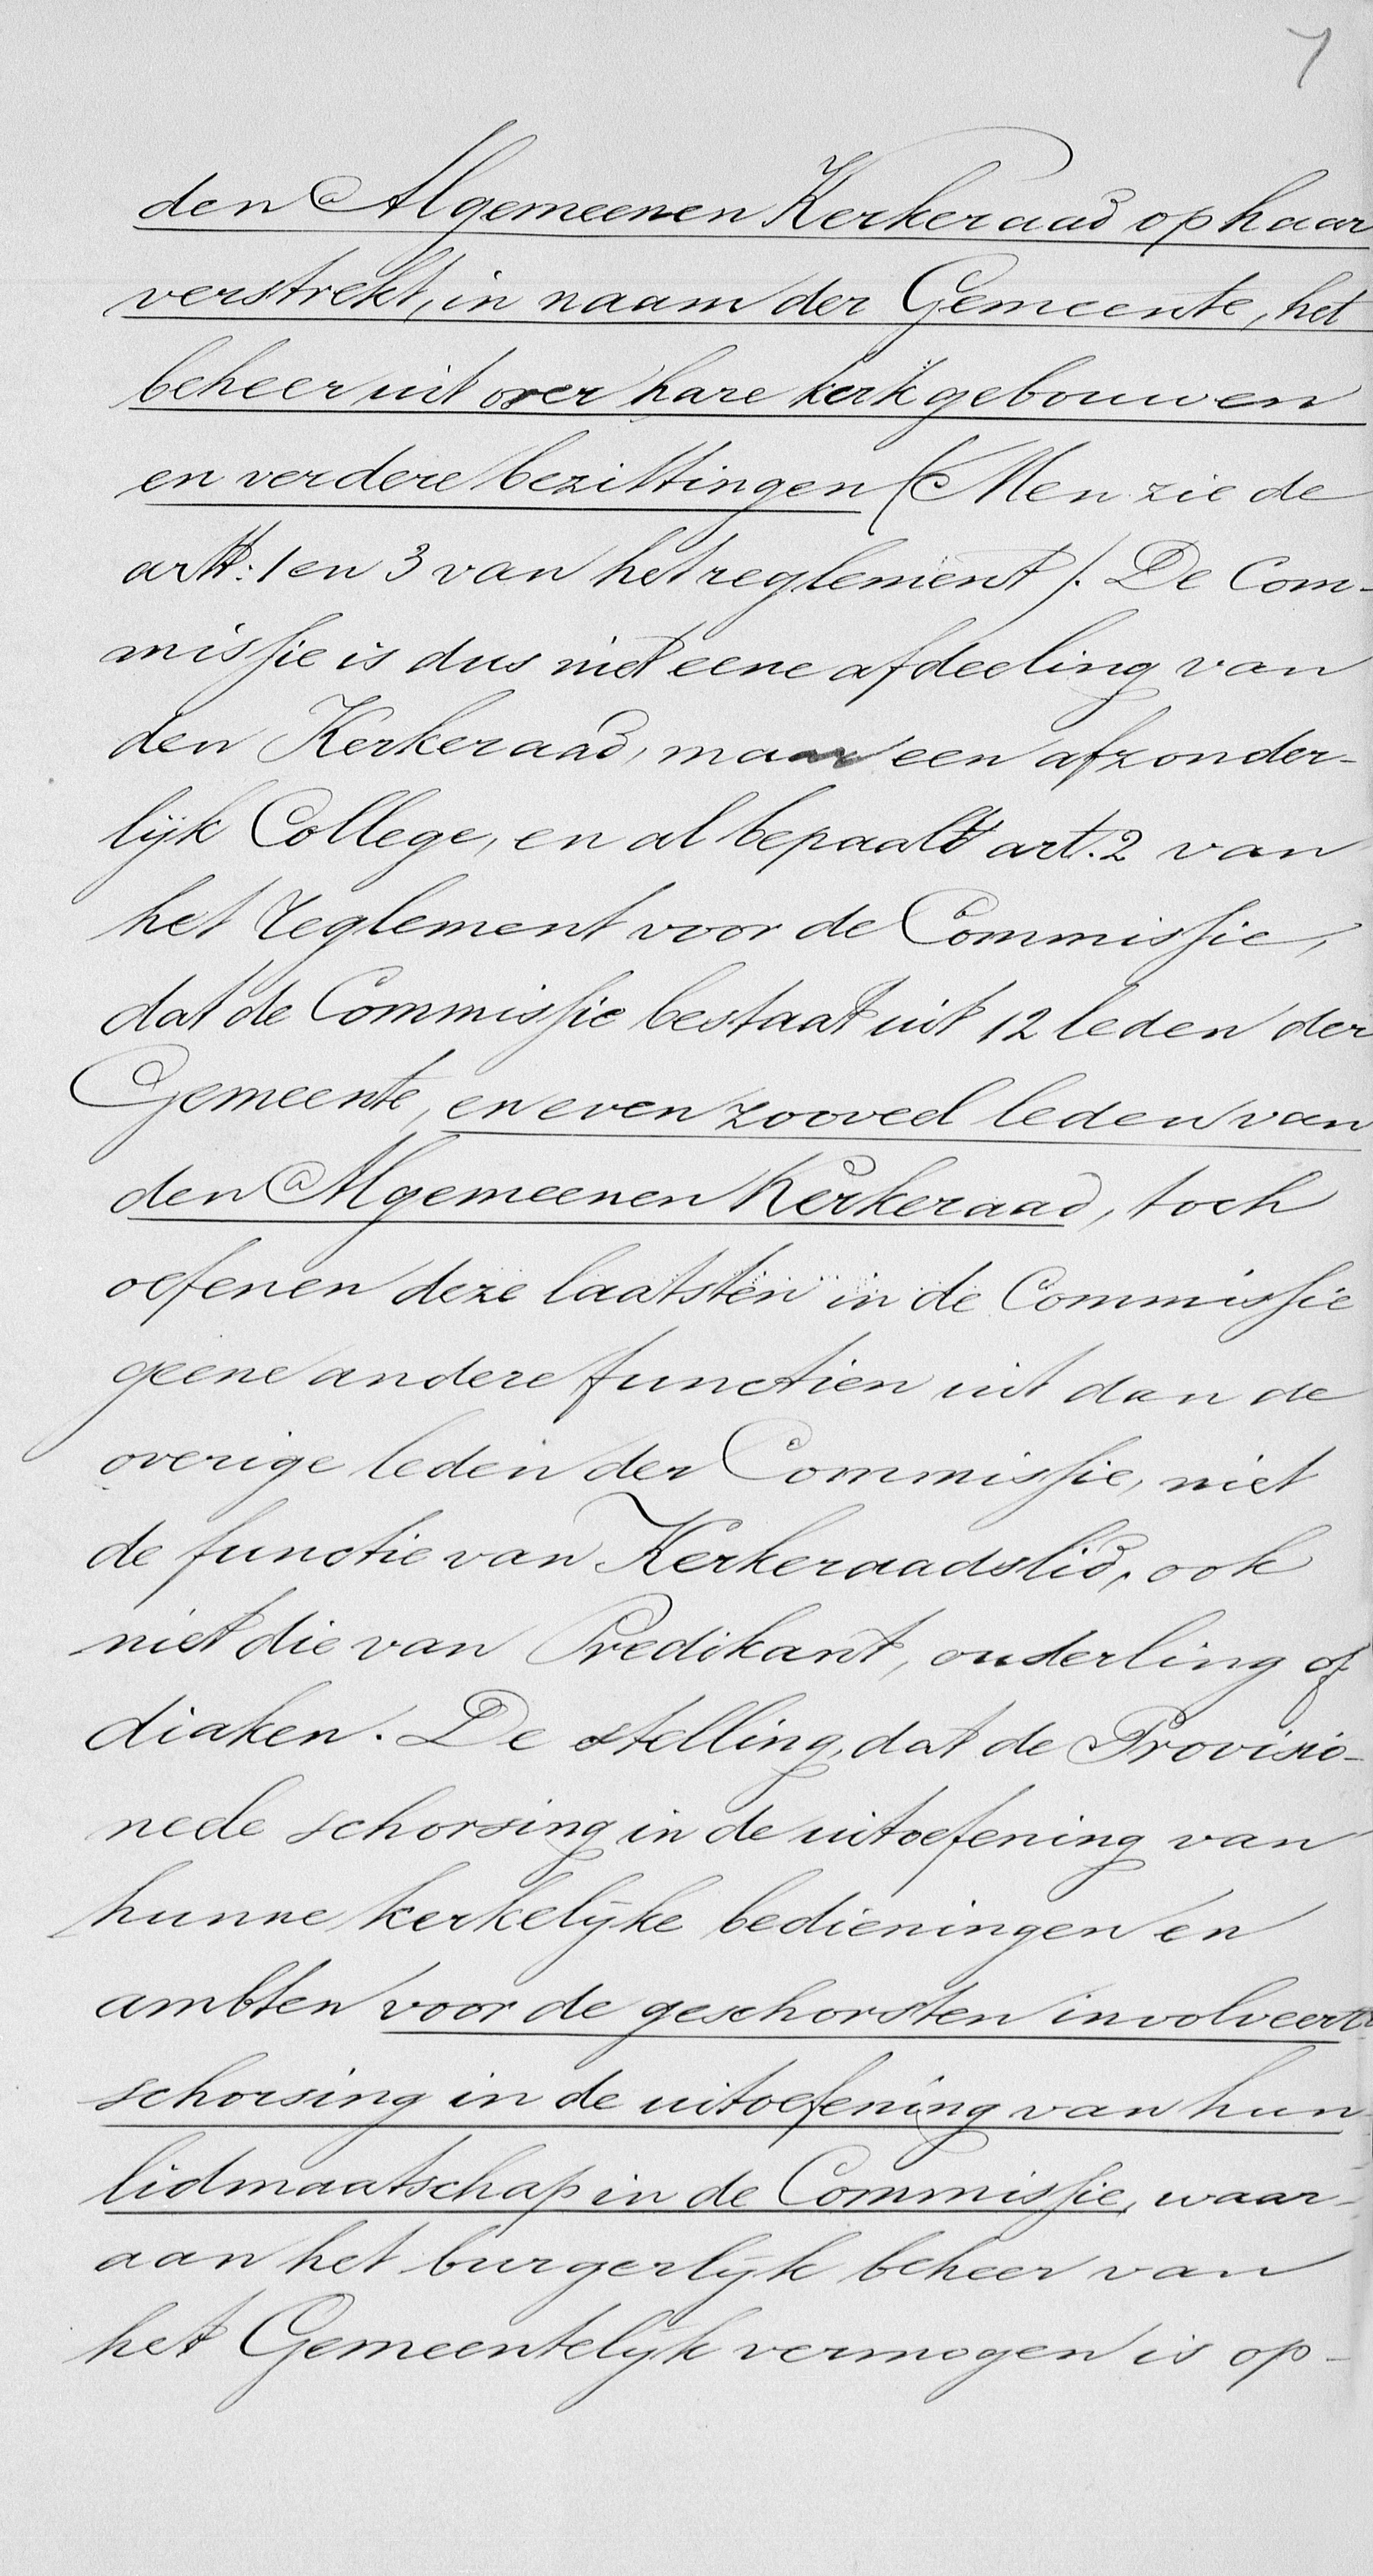 7
den Algemeenen Kerkeraad op haar
verstrekt, in naam der Gemeente, het
beheer uit over hare kerkgebouwen
en verdere bezittingen (Men zie de
artt: 1 en 3 van het reglement). De Com-
missie is dus niet eene afdeeling van
den Kerkeraad, maar een afzonder-
lijk College, en al bepaalt art. 2 van
het reglement voor de Commissie,
dat de Commissie bestaat uit 12 leden der
Gemeente, en even zooveel leden van
den Algemeenen Kerkeraad, toch
oefenen deze laatsten in de Commissie
geene andere functien uit dan de
overige leden der Commissie, niet
de functie van Kerkeraadslid, ook
niet die van Predikant, ouderling of
diaken. De stelling, dat de Provisio-
neele schorsing in de uitoefening van
hunne kerkelijke bedieningen en
ambten voor de geschorsten involveert
schorsing in de uitoefening van hun
lidmaatschap in de Commissie, waar-
aan het burgerlijk beheer van
het Gemeentelijk vermogen is op-